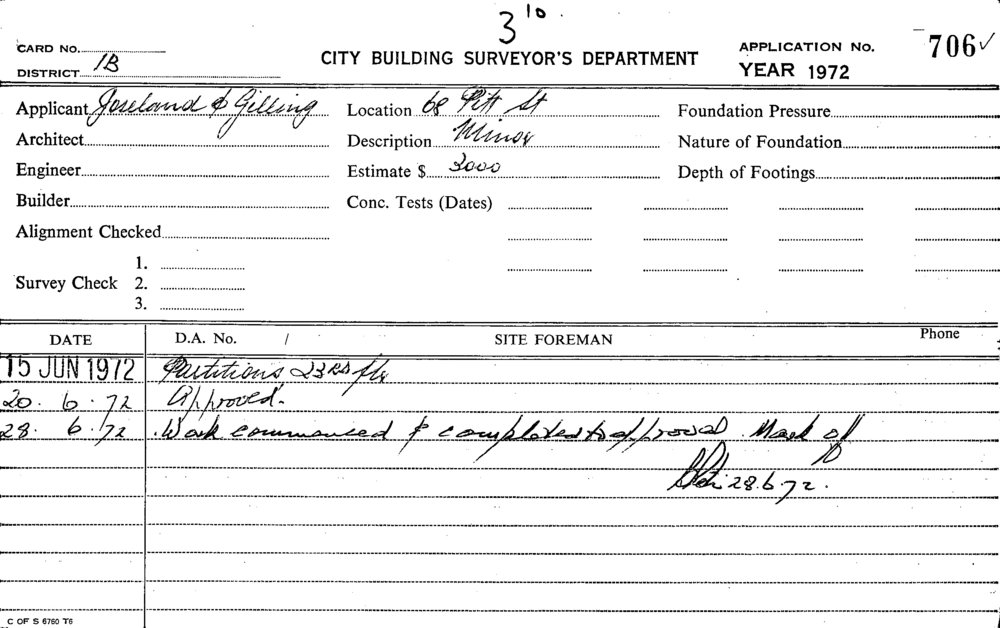 3 10.
CARD NO.
CITY BUILDING SURVEYOR'S DEPARTMENT
APPLICATION No. 706 ✓
DISTRICT 1B
YEAR 1972
Applicant Joseland & Gilling
Location 68 Pitt St
Foundation Pressure
Architect
Description Minor
Nature of Foundation
Engineer
Estimate $ 3000
Depth of Footings
Builder
Conc. Tests (Dates)
Alignment Checked
Survey Check
1.
2.
3.
DATE D.A. No. / SITE FOREMAN Phone
15 JUN 1972 Partitions 23RD flr
20. 6. 72 Approved.
28. 6. 72 Work commenced & completed to approval. Mark off
28.6.72.
C OF S 6760 T6